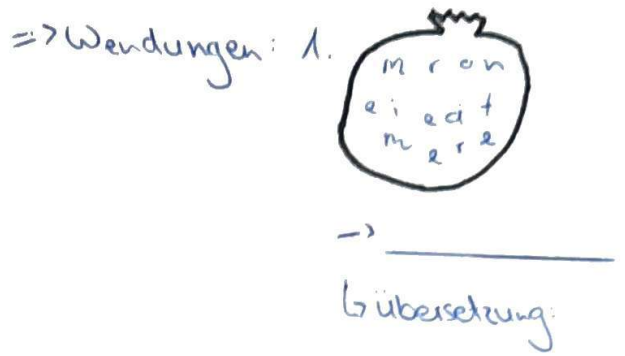 => Wendungen: 1.
m r o n
e i e d i t
m e r e
->
↳ übersetzung: